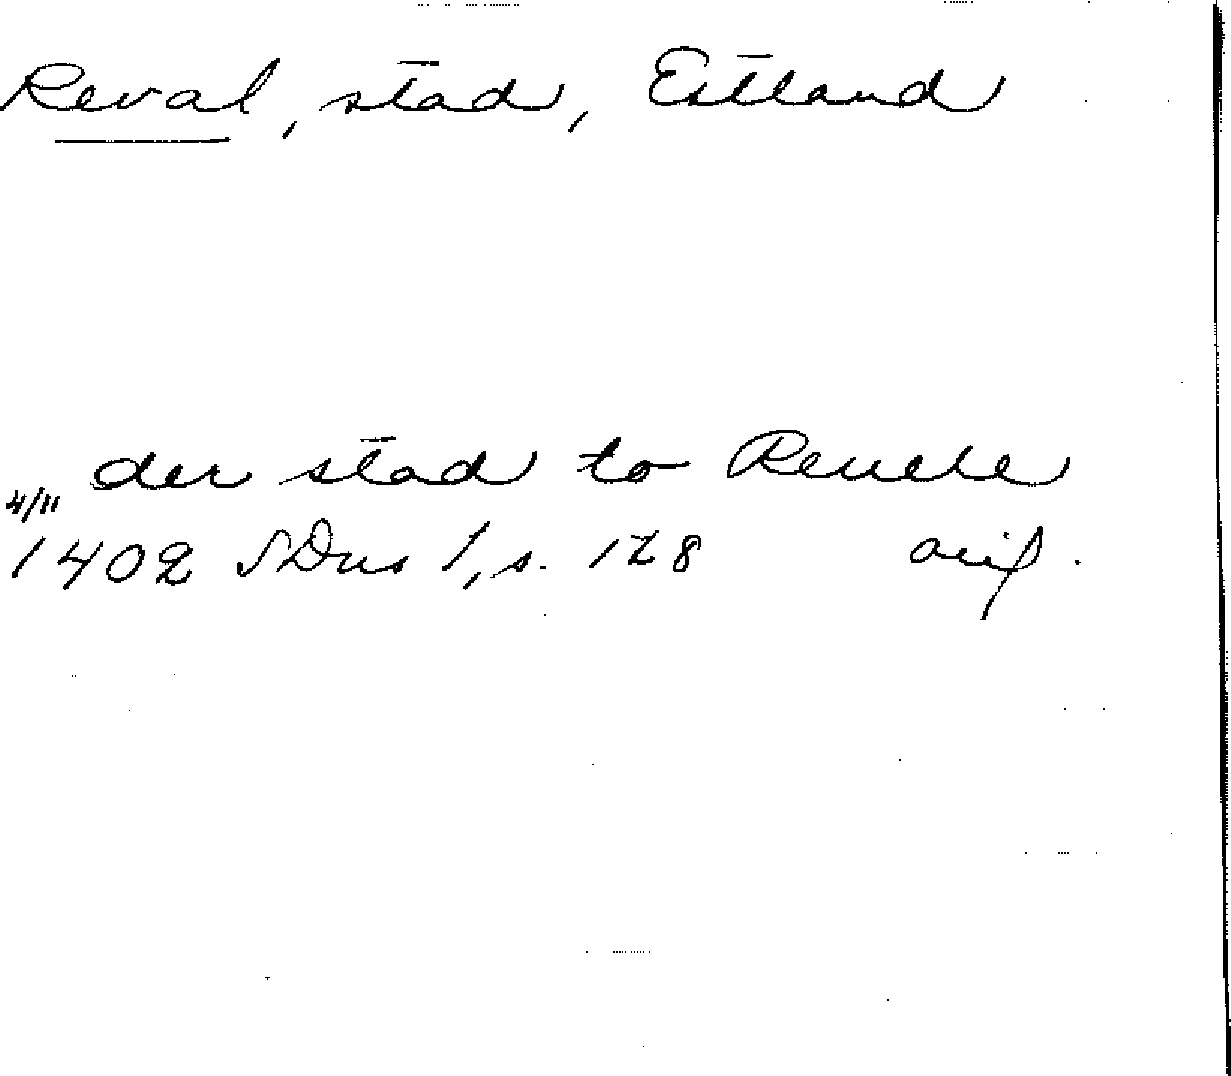 Reval, stad, Estland
der stad to Reuele
4/11
1402 SDns 1, s. 128 avif.